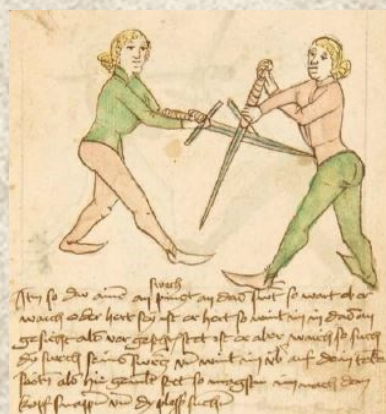 swech
Item so dw aim an pindst an das swert so wart ob er
waich oder hert sey ist er hert so wint im in das an
gesicht als vor geschribn stet ist er aber waich so such
dy swech seins swertz vn wint im auf dem
als hie gemalt stet so magstu im nach dem
kopf snappn vn dy plöss suchn